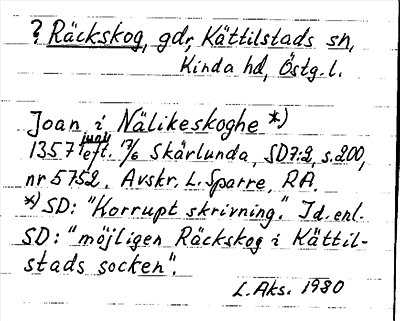 ? Räckskog, gdr, Kättilstads sn,
Kinda hd, Östg. l.
Joan i Nälikeskoghe *)
1357 juni eft. 7/6 Skärlunda, SD 7:2, s. 200,
nr 5752. Avskr. L. Sparre, RA.
*) SD: "Korrupt skrivning." Id. enl.
SD: "möjligen Räckskog i Kättil-
stads socken".
L. Aks. 1980